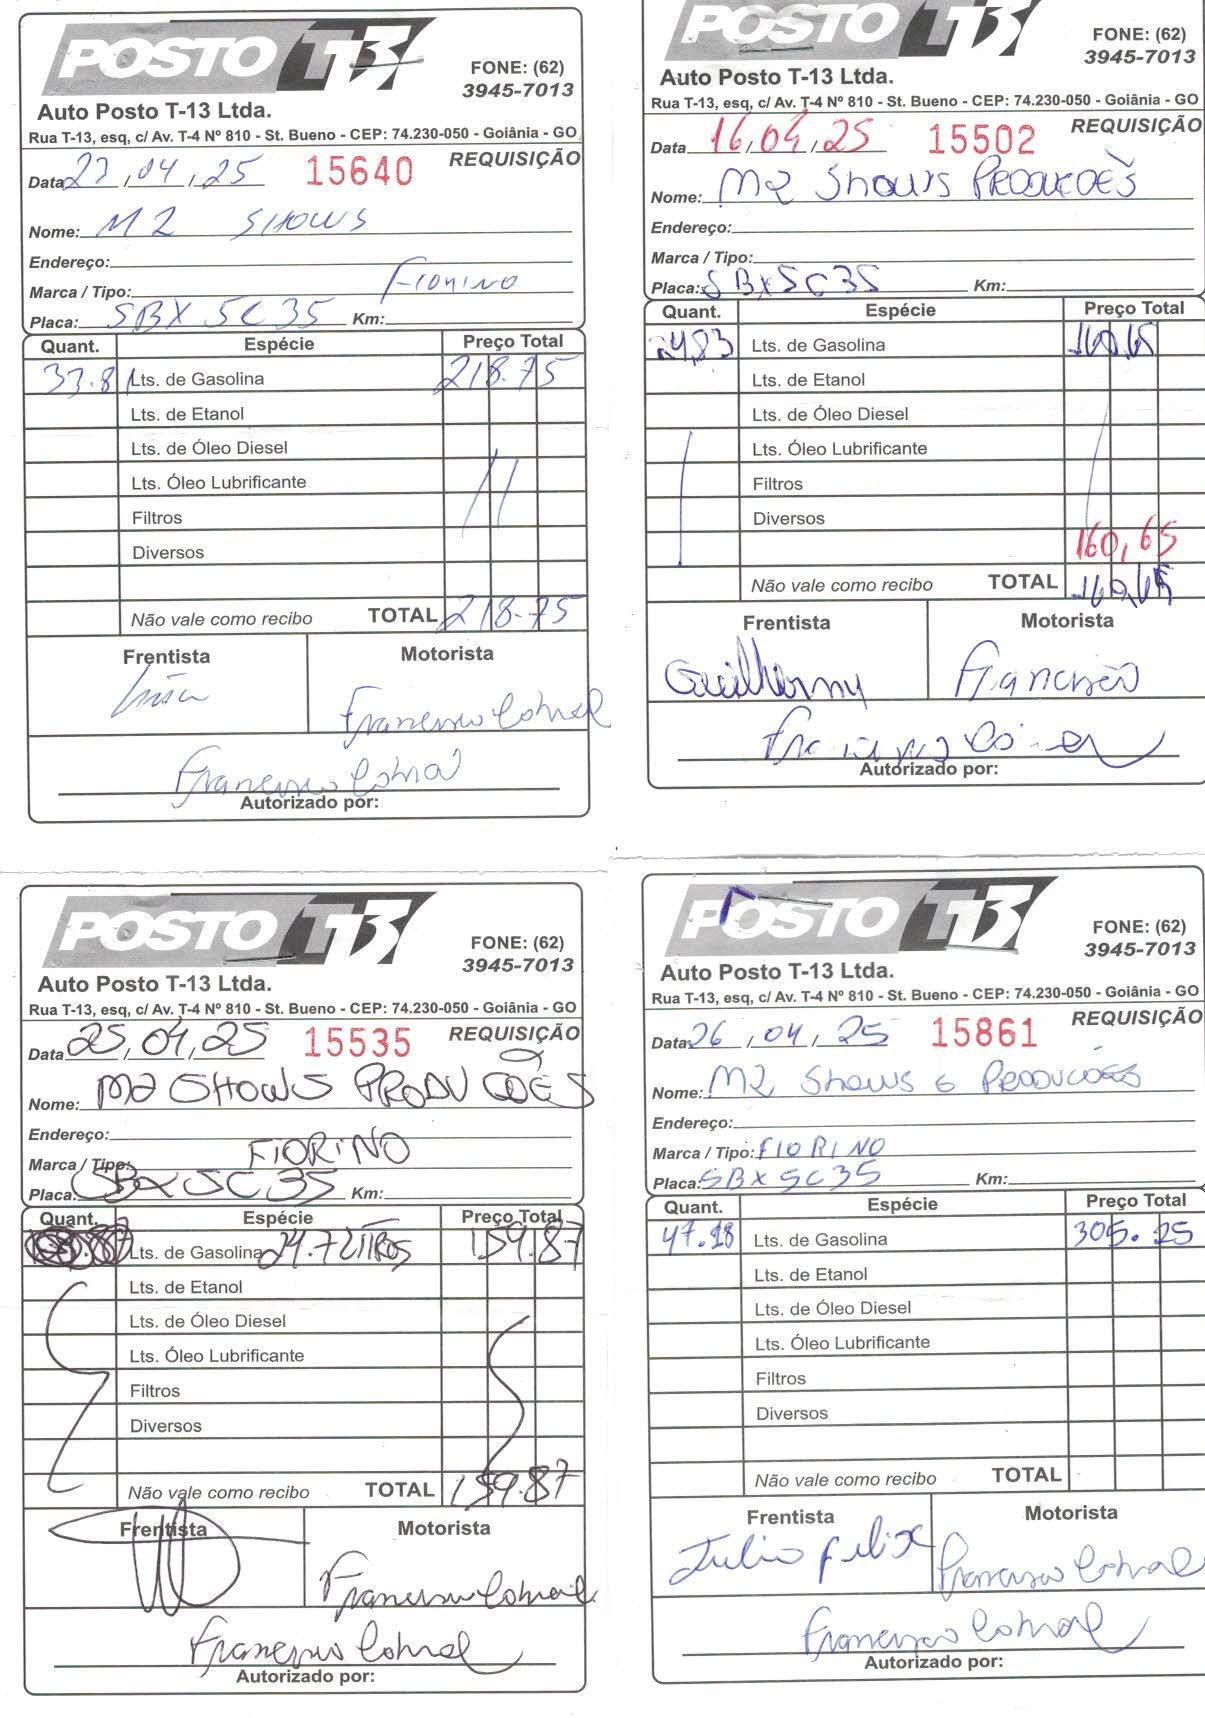 POSTO T-13
FONE: (62)
3945-7013
Auto Posto T-13 Ltda.
Rua T-13, esq, c/ Av. T-4 Nº 810 - St. Bueno - CEP: 74.230-050 - Goiânia - GO
REQUISIÇÃO
Data 22,04,25 15640
Nome: M2 SHOWS
Endereço:
Marca / Tipo: Fiorino
Placa: SBX 5C35 Km:
Quant. Espécie Preço Total
33.81 Lts. de Gasolina 218.75
Lts. de Etanol
Lts. de Óleo Diesel
Lts. Óleo Lubrificante
Filtros
Diversos
Não vale como recibo TOTAL 218-75
Frentista Motorista
Francisco Cabral
Francisco Cabral
Autorizado por:
POSTO T-13
FONE: (62)
3945-7013
Auto Posto T-13 Ltda.
Rua T-13, esq, c/ Av. T-4 Nº 810 - St. Bueno - CEP: 74.230-050 - Goiânia - GO
REQUISIÇÃO
Data 16/04/25 15502
Nome: M2 Shows PRODUCOES
Endereço:
Marca / Tipo:
Placa: SBX5C35 Km:
Quant. Espécie Preço Total
24,83 Lts. de Gasolina 160,65
Lts. de Etanol
Lts. de Óleo Diesel
Lts. Óleo Lubrificante
Filtros
Diversos
160,65
Não vale como recibo TOTAL 160,65
Frentista Motorista
Guilhermy Francisco
Autorizado por:
POSTO T-13
FONE: (62)
3945-7013
Auto Posto T-13 Ltda.
Rua T-13, esq, c/ Av. T-4 Nº 810 - St. Bueno - CEP: 74.230-050 - Goiânia - GO
REQUISIÇÃO
Data 25,04,25 15535
Nome: M2 SHOWS PRODUÇÕES
Endereço:
Marca / Tipo: FIORINO
Placa: SBX5C35 Km:
Quant. Espécie Preço Total
Lts. de Gasolina 24.7 LITROS 159.87
Lts. de Etanol
Lts. de Óleo Diesel
Lts. Óleo Lubrificante
Filtros
Diversos
Não vale como recibo TOTAL 159.87
Frentista Motorista
Francisco Cabral
Francisco Cabral
Autorizado por:
POSTO T-13
FONE: (62)
3945-7013
Auto Posto T-13 Ltda.
Rua T-13, esq, c/ Av. T-4 Nº 810 - St. Bueno - CEP: 74.230-050 - Goiânia - GO
REQUISIÇÃO
Data 26,04,25 15861
Nome: M2 Shows e PRODUCÕES
Endereço:
Marca / Tipo: FIORINO
Placa: SBX5C35 Km:
Quant. Espécie Preço Total
47.18 Lts. de Gasolina 305.25
Lts. de Etanol
Lts. de Óleo Diesel
Lts. Óleo Lubrificante
Filtros
Diversos
Não vale como recibo TOTAL
Frentista Motorista
Julio Felix Francisco Cabral
Francisco Cabral
Autorizado por: